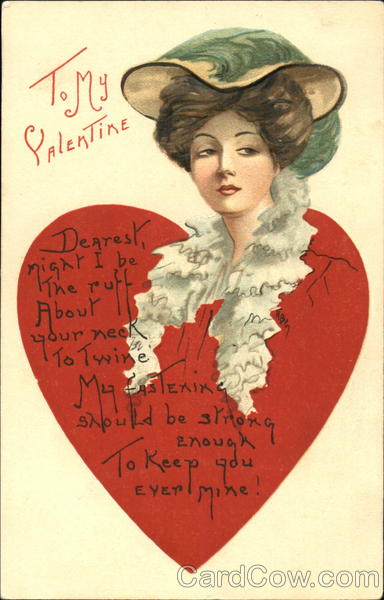 To My
Valentine
Dearest,
might I be
the ruff
About
your neck
To Twine
My fastening
should be strong
enough
To Keep you
ever mine!
CardCow.com